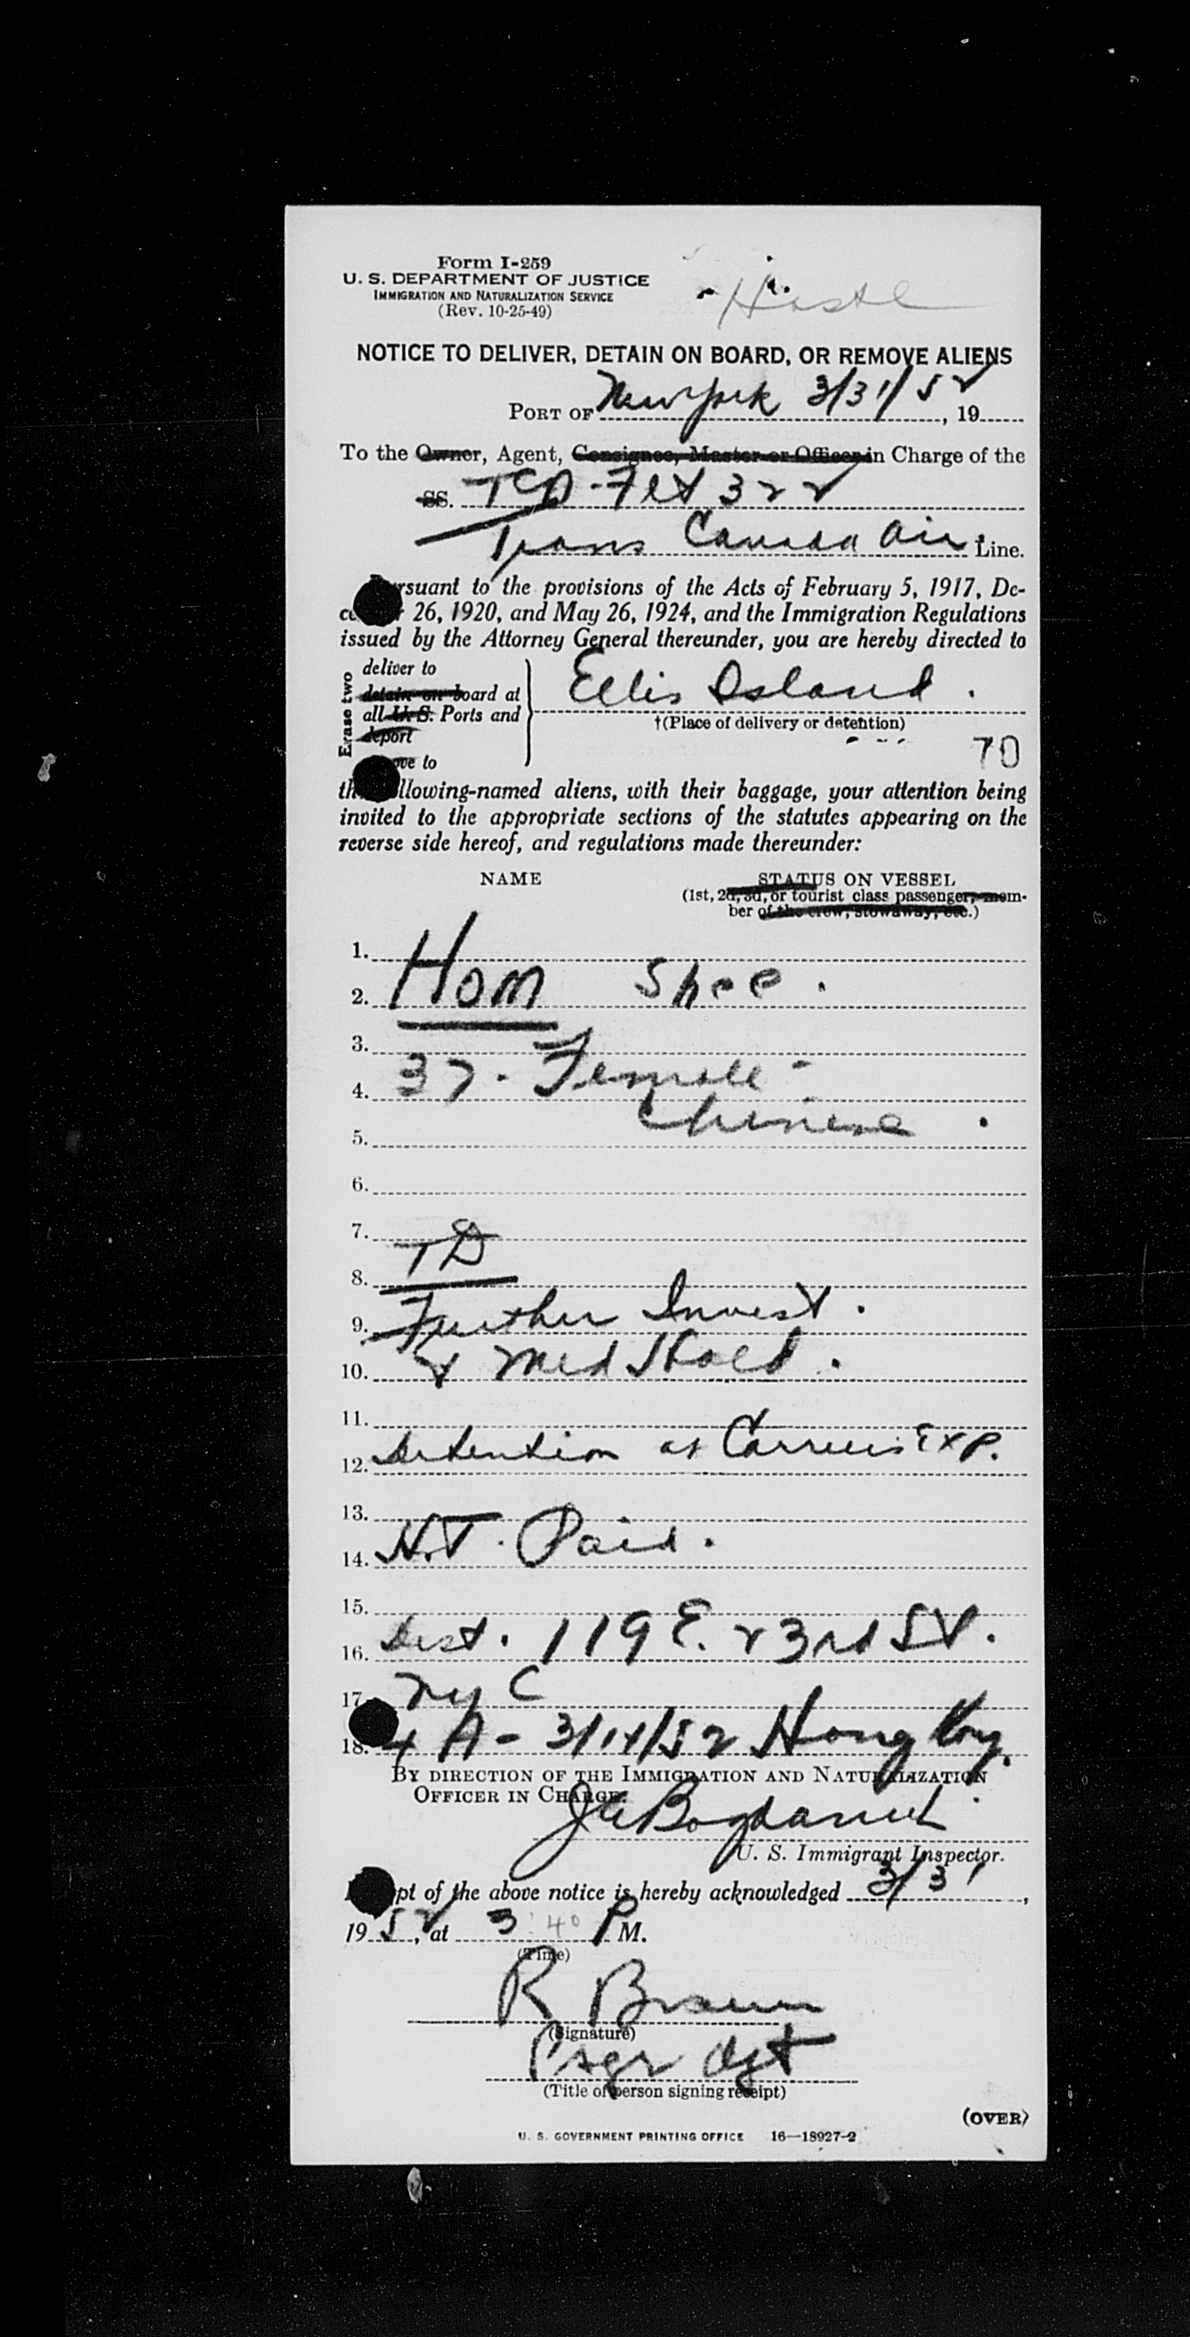 Form I-259
U. S. DEPARTMENT OF JUSTICE
IMMIGRATION AND NATURALIZATION SERVICE
(Rev. 10-25-49)
NOTICE TO DELIVER, DETAIN ON BOARD, OR REMOVE ALIENS
PORT OF New York 3/31/52, 19
To the Owner, Agent, Consignee, Master or Officer in Charge of the
SS. TCA - Flt 322
Trans Canada Air Line.
Pursuant to the provisions of the Acts of February 5, 1917, De-
26, 1920, and May 26, 1924, and the Immigration Regulations
issued by the Attorney General thereunder, you are hereby directed to
Erase two
deliver to
detain on board at
all U. S. Ports and
deport
to
Ellis Island.
†(Place of delivery or detention)
70
the following-named aliens, with their baggage, your attention being
invited to the appropriate sections of the statutes appearing on the
reverse side hereof, and regulations made thereunder:
NAME STATUS ON VESSEL
(1st, 2d, 3d, or tourist class passenger, mem-
ber of the crew, stowaway, etc.)
1.
2. Hom Shee.
3.
4. 37. Female -
5. Chinese.
6.
7.
8. TD
9. Further Invest.
10. & Med Hold.
11.
12. Detention at Carriers Exp.
13.
14. H.T. Paid.
15.
16. Dest. 119 E. 23rd St.
17. NYC
18. 4 A - 3/14/52 Hong Kong.
BY DIRECTION OF THE IMMIGRATION AND NATURALIZATION
OFFICER IN CHARGE.
U. S. Immigrant Inspector.
Receipt of the above notice is hereby acknowledged 3/31,
19 52, at 3:40 P M.
(Time)
R Braun
(Signature)
Psgr Agt
(Title of person signing receipt)
(OVER)
U. S. GOVERNMENT PRINTING OFFICE 16—18927-2